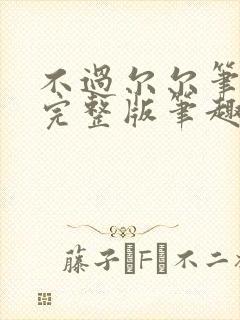 不過尔尔筆
完整版筆趣
藤子·F·不二雄